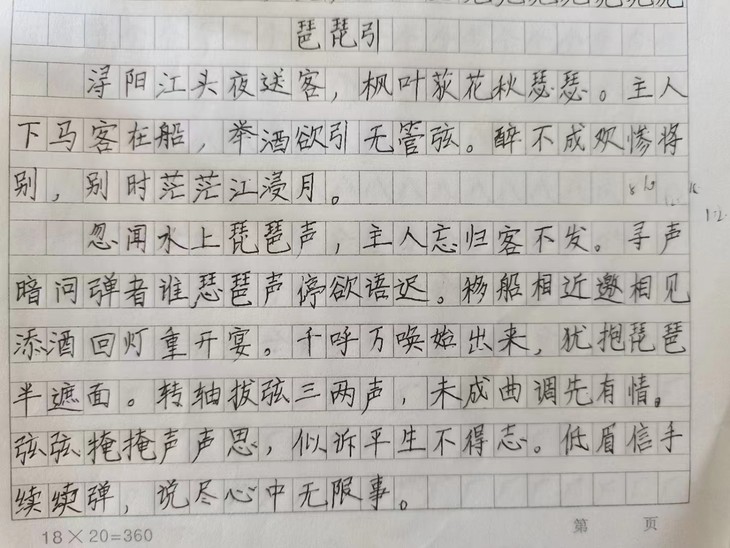 琵琶引
浔阳江头夜送客，枫叶荻花秋瑟瑟。主人
下马客在船，举酒欲引无管弦。醉不成欢惨将
别，别时茫茫江浸月。
忽闻水上琵琶声，主人忘归客不发。寻声
暗问弹者谁瑟琶声停欲语迟。移船相近邀相见
添酒回灯重开宴。千呼万唤始出来，犹抱琵琶
半遮面。转轴拔弦三两声，未成曲调先有情。
弦弦掩掩声声思，似诉平生不得志。低眉信手
续续弹，说尽心中无限事。
18×20=360
第 页